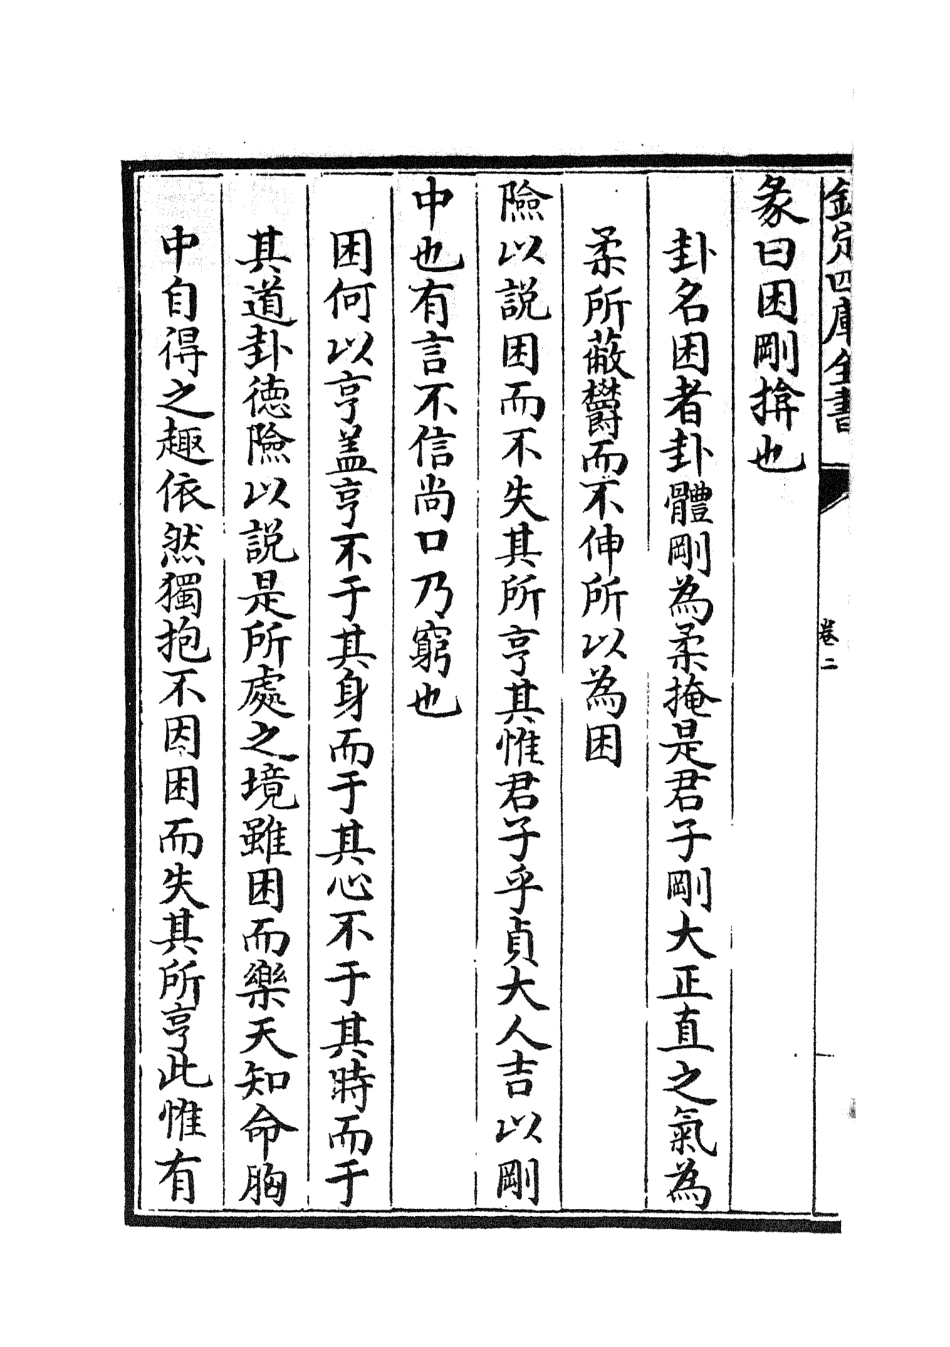 欽定四庫全書
卷二
彖曰困剛揜也
卦名困者卦體剛為柔掩是君子剛大正直之氣為
柔所蔽欝而不伸所以為困
險以説困而不失其所亨其惟君子乎貞大人吉以剛
中也有言不信尚口乃窮也
困何以亨盖亨不于其身而于其心不于其時而于
其道卦德險以説是所處之境雖困而樂天知命胸
中自得之趣依然獨抱不因困而失其所亨此惟有